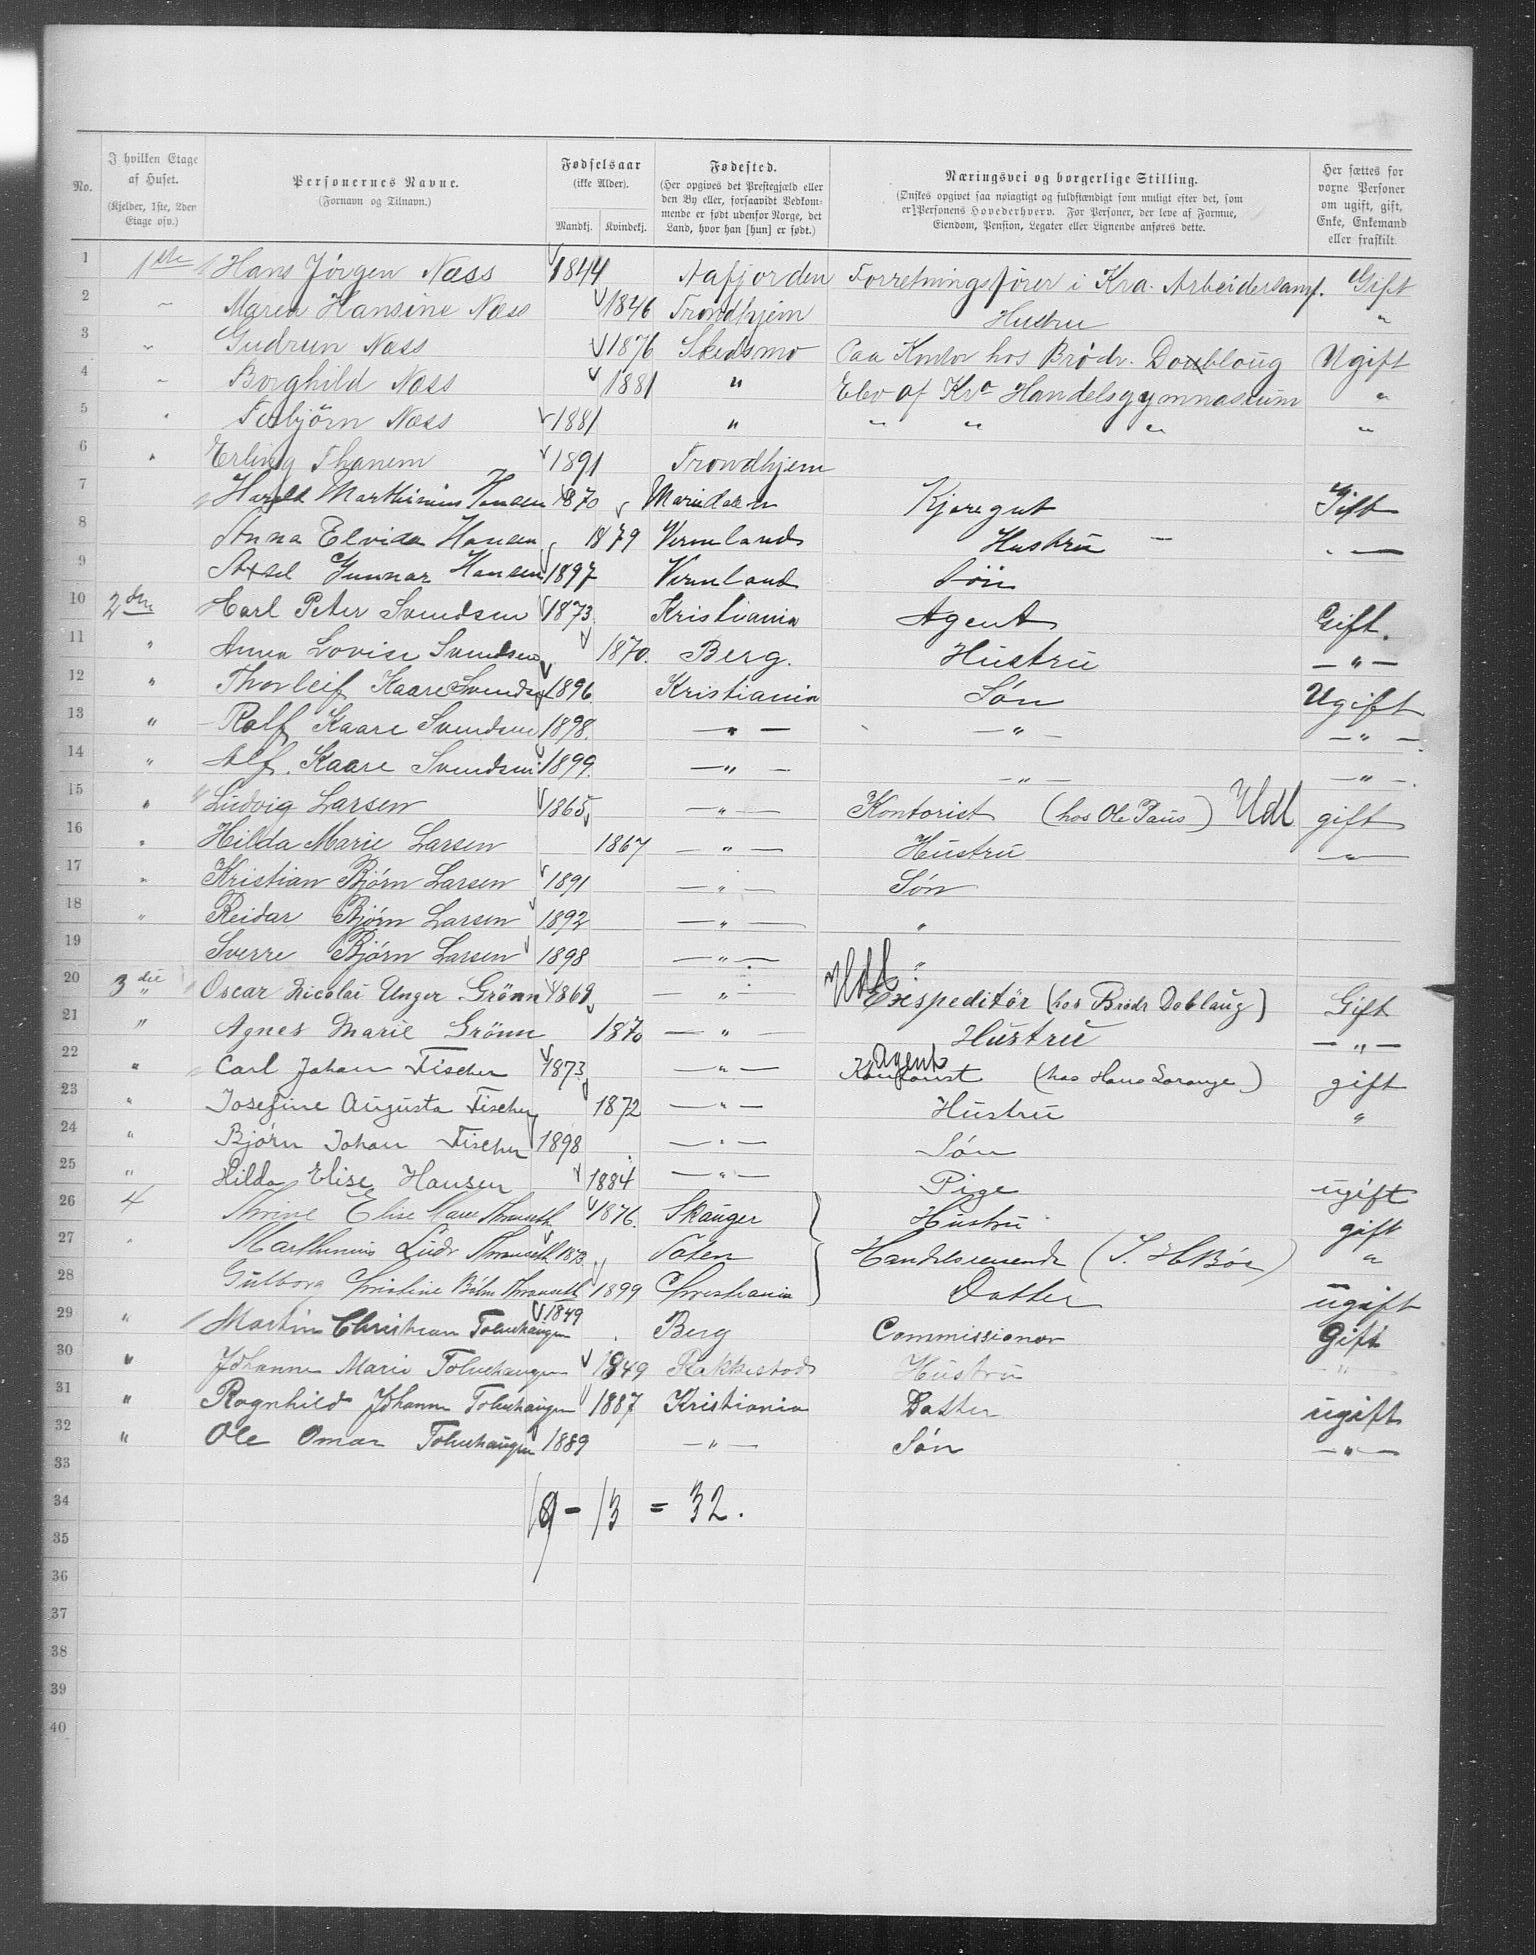 No. | I hvilken Etage af Huset. (Kjelder, 1ste, 2den Etage osv.) | Personernes Navne. (Fornavn og Tilnavn.) | Fødselsaar (ikke Alder). Mandkj. Kvindekj. | Fødested. (Her opgives det Prestegjæld eller den By eller, forsaavidt Vedkommende er født udenfor Norge, det Land, hvor han [hun] er født.) | Næringsvei og borgerlige Stilling. (Ønskes opgivet saa nøiagtigt og fuldstændigt som muligt efter det, som er Personens Hovederhverv. For Personer, der leve af Formue, Eiendom, Pension, Legater eller Lignende anføres dette. | Her sættes for voxne Personer om ugift, gift, Enke, Enkemand eller fraskilt.
1 1ste Hans Jörgen Næss 1844 Aafjorden Forretningsförer i Kra. Arbeidersamf. Gift
2 " Maren Hansine Næss 1846 Trondhjem Hustru "
3 " Gudrun Næss 1876 Skedsmo Paa Kontor hos Brödr. Doubloug Ugift
4 " Borghild Næss 1881 " Elev af Kra Handelsgymnasium "
5 " Næss 1881 " " " " "
6 " Erling Thanem 1891 Trondhjem
7 Harald Marthinius Hansen 1870 Maridalen Kjøregut Gift
8 Anna Elvida Hansen 1879 Vermland Hustru "
9 Axsel Gunnar Hansen 1897 Vermland Sön
10 2den Carl Peter Svendsen 1873. Kristiania Agent Gift.
11 " Anna Lovise Svendsen 1870. Berg. Hustru — " —
12 " Thorleif Kaare Svendsen 1896 Kristiania Søn Ugift
13 " Rolf Kaare Svendsen 1898. — " — — " — — " —
14 " Alf. Kaare Svendsen 1899. — " — — " — — " —
15 " Ludvig Larsen 1865 — " — Kontorist (hos Ole Paus) Udl gift
16 " Hilda Marie Larsen 1867 — " — Hustru — " —
17 " Kristian Bjørn Larsen 1891 — " — Søn
18 " Reidar Bjørn Larsen 1892 — " — "
19 Sverre Bjørn Larsen 1898 — " — "
20 3die " Oscar Nicolai Unger Grönn 1869 — " — Udl Exspeditör (hos Brödr Doblaug) Gift
21 " Agnes Marie Grönn 1870 — " — Hustru — " —
22 " Carl Johan Fischer 1873. — " — Kontorist Agent (hos Hans Lorange) gift
23 " Josefine Augusta Fischer 1872 — " — Hustru "
24 " Bjørn Johan Fischer 1898 — " — Søn
25 " Hilda Elise Hansen 1884 — " — Pige ugift
26 4 Thrine Elise 1876. Skauger Hustru gift
27 " Marthinius 1873 Toten Handelsreisende "
28 Gulborg Christine 1899 Christiania Datter ugift
29 " Martin Christian 1849 Berg Commissionær Gift
30 " Johanne Marie 1849 Rakkestad Hustru "
31 " Ragnhild Johanne 1887 Kristiania Datter ugift
32 " Ole Omar 1889 — " — Søn — " —
33
34 19 - 13 = 32.
35
36
37
38
39
40